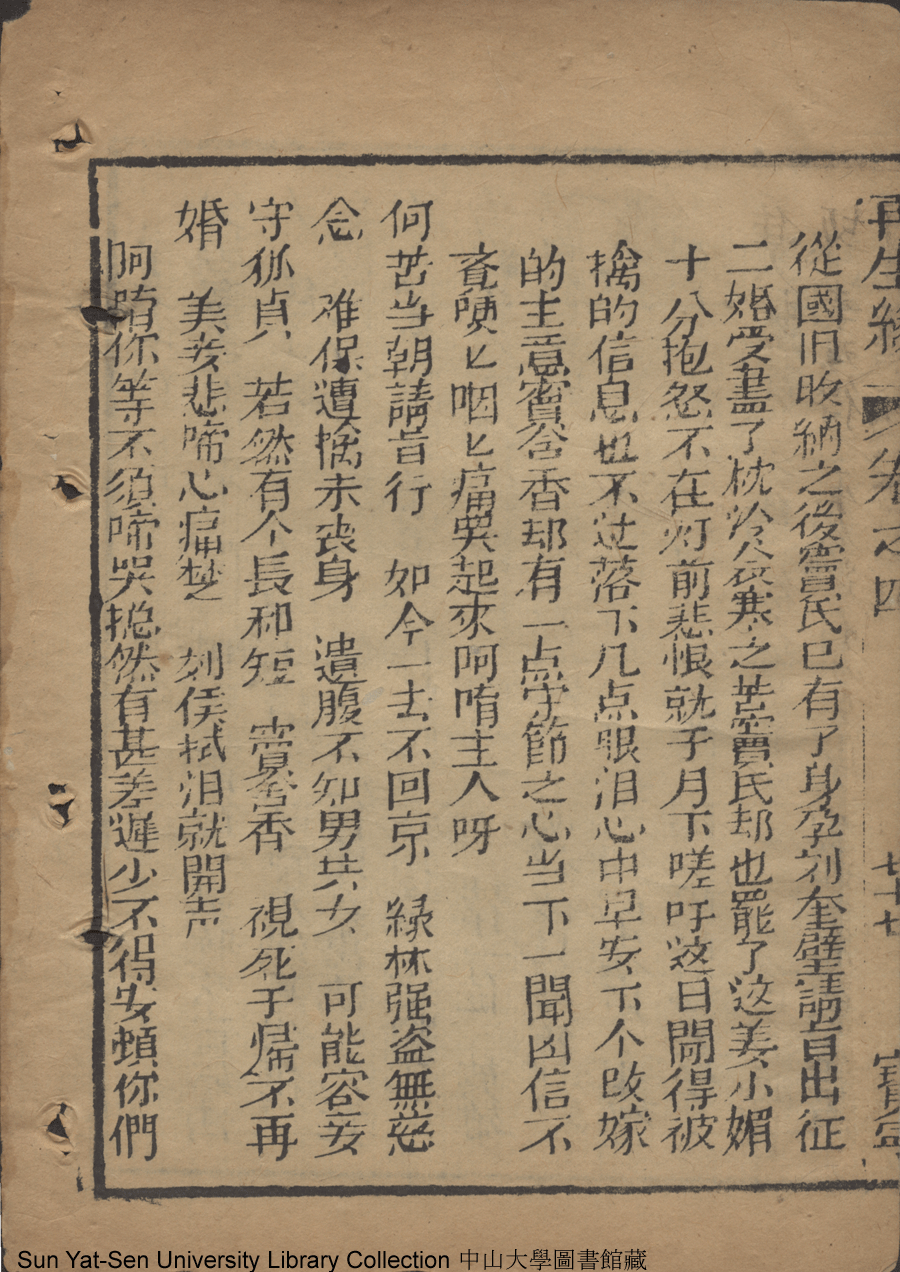 再生緣 卷之四 七十七 寧
從國旧收納之後竇氏已有了身孕刘奎璧請旨出征
二婚受盡了枕冷衾寒之苦竇氏却也罷了这姜小媚
十分抱怨不在灯前悲恨就于月下嗟吁这日聞得被
擒的信息也不过落下几点眼泪心中早安下个改嫁
的主意竇含香却有一点守節之心当下一聞凶信不
竟哽匕咽匕痛哭起來阿唷主人呀
何苦当朝請旨行 如今一去不回京 緑林强盗無慈
念 难保遭擒未丧身 遺腹不知男共女 可能容妾
守孤貞 若然有个長和短 竇含香 視死于帰不再
婚 美妾悲啼心痛楚 刘侯拭泪就開声
阿唷你等不須啼哭捴然有甚差遲少不得安頓你們
Sun Yat-Sen University Library Collection 中山大學圖書館藏